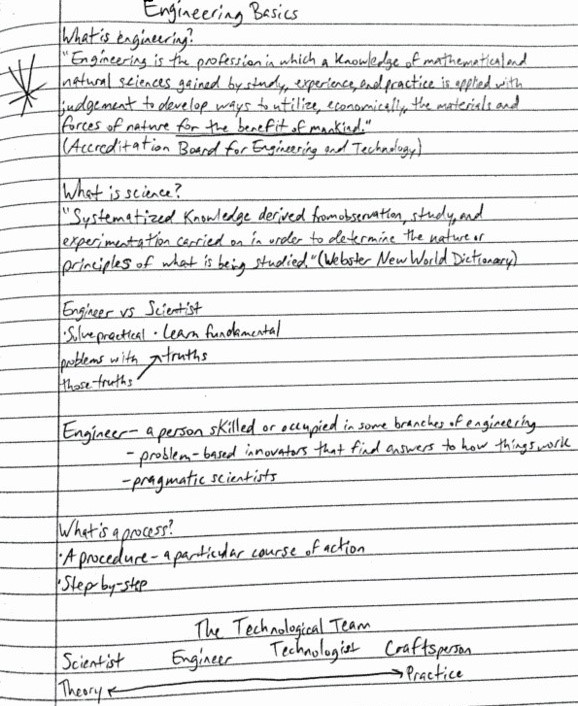 Engineering Basics
What is engineering?
"Engineering is the profession in which a knowledge of mathematical and
natural sciences gained by study, experience, and practice is applied with
judgement to develop ways to utilize, economically, the materials and
forces of nature for the benefit of mankind."
(Accreditation Board for Engineering and Technology)
What is science?
"Systematized knowledge derived from observation, study, and
experimentation carried on in order to determine the nature or
principles of what is being studied." (Webster New World Dictionary)
Engineer vs Scientist
·Solve practical ·Learn fundamental
problems with truths
those truths
Engineer - a person skilled or occupied in some branches of engineering
- problem-based innovators that find answers to how things work
- pragmatic scientists
What is a process?
·A procedure - a particular course of action
·Step by-step
The Technological Team
Scientist Engineer Technologist Craftsperson
Theory Practice